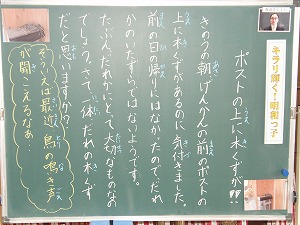 キラリ輝く!明和っ子
ポストの上に木くずが!!
きのうの朝、げんかんの前のポストの
上に木くずがあるのに気付きました。
前の日の帰りにはなかったのでだれ
かのいたずらではないようです。
たぶん、だれかにとって大切なものなの
でしょう。さて、一体だれの木くず
だと思いますか??
そういえば最近、鳥の鳴き声
が聞こえるなぁ…